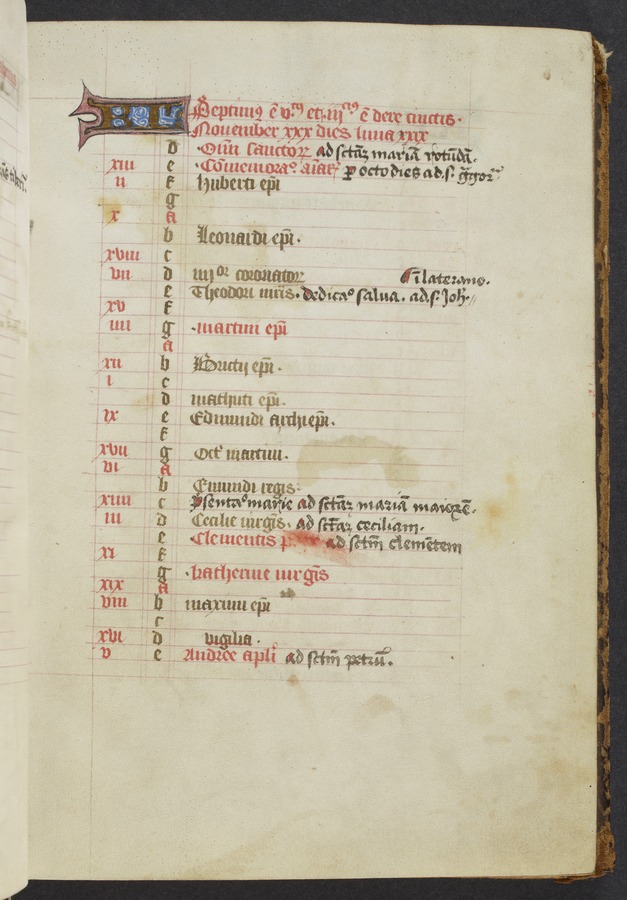 KL Septimus ē v.tus et iij.cius ē dece cuctis.
Nouember xxx dies luna xxx
d Oīm sanctor ad sctāz mariā rotūdā.
xiii e Cōmemora° aīar p octo dies ad s. ggor
ii f huberti epī
g
x a
b Leonardi epī.
xviii c
vii d iiii or coronator ī laterano.
e Theodori mris. dedica° salua. ad s. Joh.
xv f
iiii g martini epī
a
xii b Bricii epī.
i c
d mathuti epī.
ix e Edmundi archiepī.
f
xvii g Oct martini.
vi a
b Emundi regis.
xiiii c Psenta° marie ad sctāz mariā maiorē.
iii d Cecilie uirgīs. ad sctāz ceciliam.
e Clementis p ad sctm clemētem
xi f
g katherine uirgīs
xix a
viii b maximi epī
c
xvi d vigilia.
v e Andree aplī ad sctm petrū.